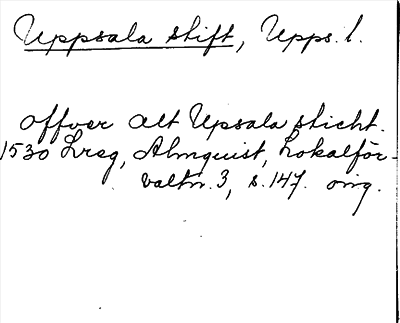 Uppsala stift, Upps. l.
offver alt Upsala sticht.
1530 Lreg, Almquist, Lokalför-
valtn. 3, s. 147. orig.